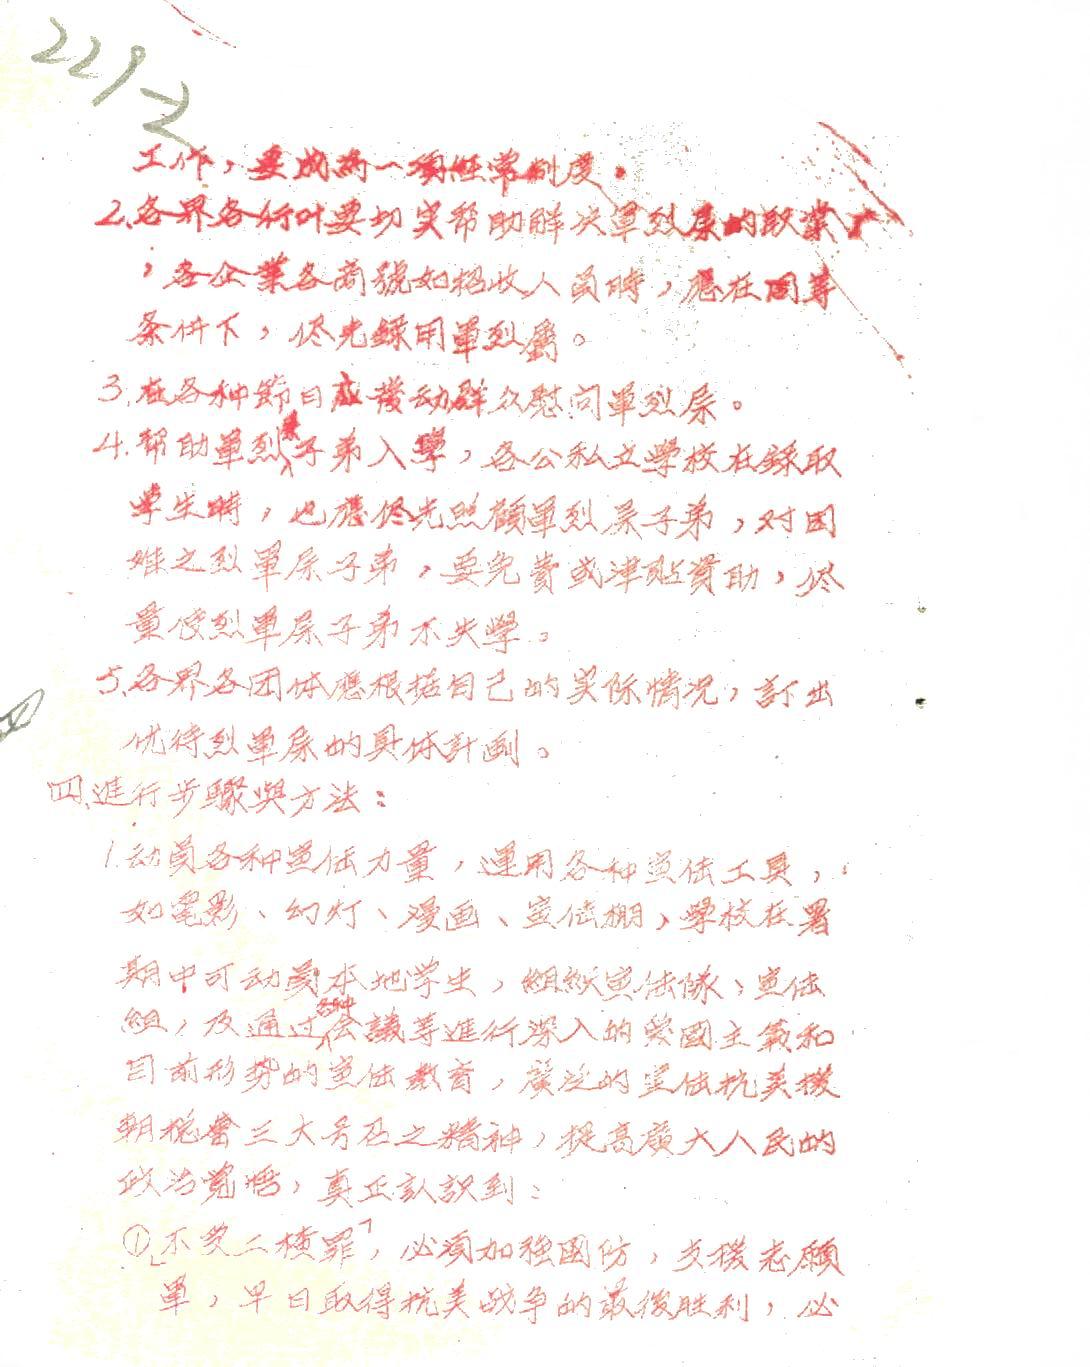 229-2
工作，要成為一項經常制度。
2.各界各行叶要切实帮助解决軍烈属的职業
，各企業各商號如招收人員時，應在同等
条件下，侭先錄用軍烈屬。
3.在各种節日应發动群众慰问軍烈属。
4.帮助軍烈属子弟入學，各公私立學校在錄取
學生時，也應侭先照顧軍烈属子弟，对困
难之烈軍属子弟，要免費或津貼資助，侭
量使烈軍属子弟不失學。
5.各界各团体應根据自己的实际情况，訂出
优待烈軍属的具体計画。
四、進行步驟與方法：
1.动員各种宣传力量，運用各种宣传工具，
如電影、幻灯、漫画、宣传棚，學校在署
期中可动員本地学生，組織宣传隊、宣传
組，及通过各种会議等進行深入的爱國主義和
目前形势的宣传教育，廣泛的宣传抗美援
朝総會三大号召之精神，提高廣大人民的
政治覺悟，真正认识到：
①不受二楂罪，必須加強國防，支援志願
軍，早日取得抗美战争的最後胜利，必